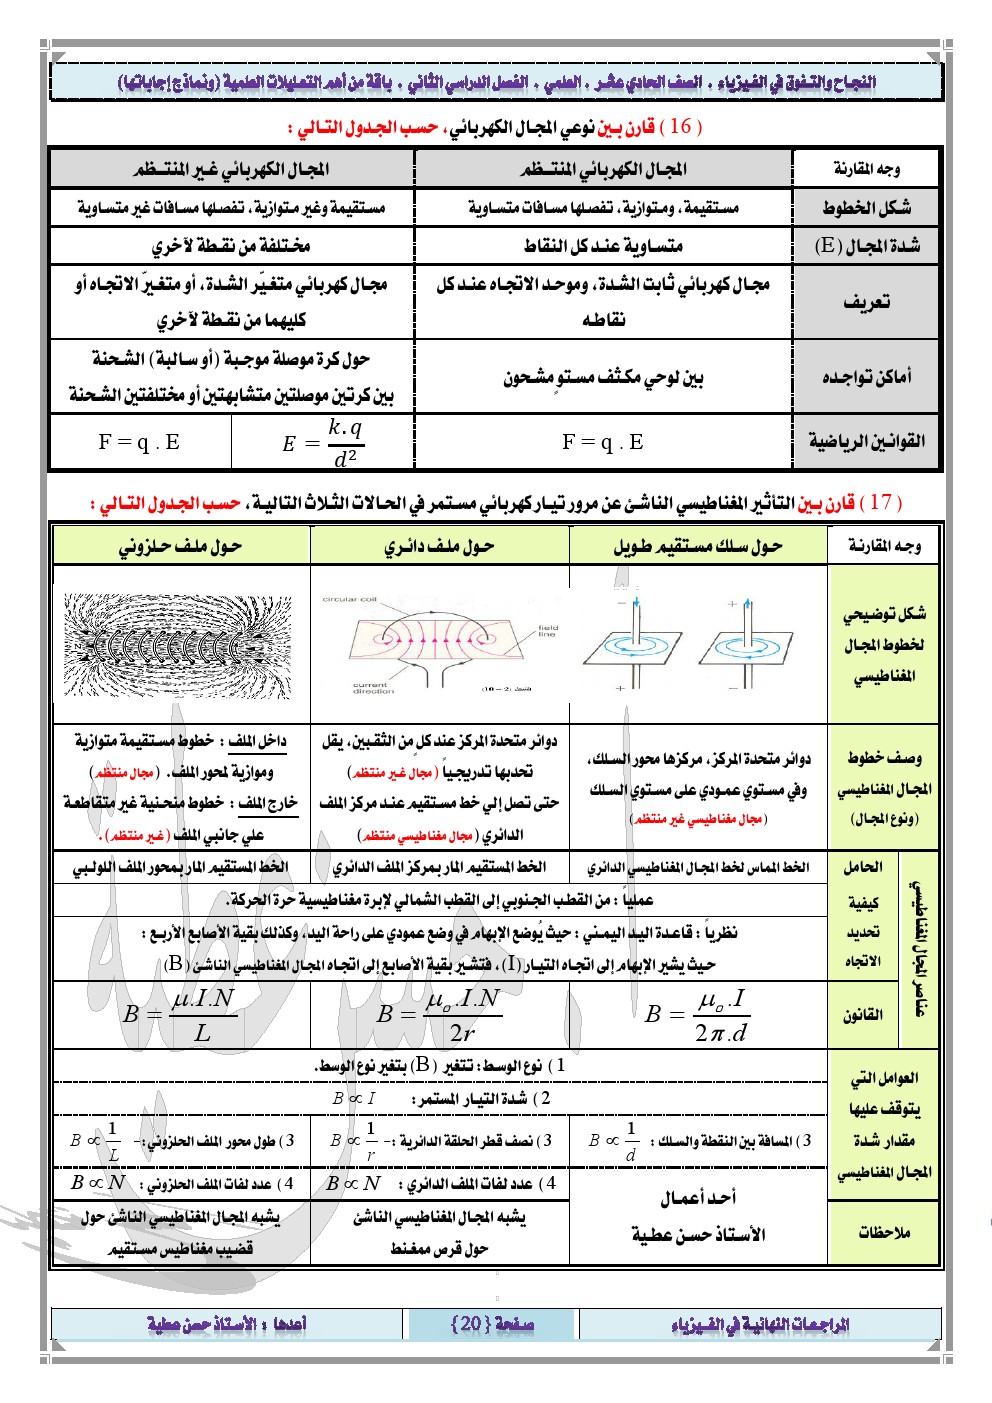 النجاح والتفوق في الفيزياء . الصف الحادي عشر . العلمي . الفصل الدراسي الثاني . باقة من أهم التعليلات العلمية (ونماذج إجاباتها)
( 16 ) قارن بين نوعي المجال الكهربائي، حسب الجدول التالي :
وجه المقارنة المجال الكهربائي المنتظم المجال الكهربائي غير المنتظم
شكل الخطوط مستقيمة، ومتوازية، تفصلها مسافات متساوية مستقيمة وغير متوازية، تفصلها مسافات غير متساوية
شدة المجال (E) متساوية عند كل النقاط مختلفة من نقطة لآخري
تعريف
مجال كهربائي ثابت الشدة، وموحد الاتجاه عند كل
نقاطه
مجال كهربائي متغيّر الشدة، أو متغيرّ الاتجاه أو
كليهما من نقطة لآخري
أماكن تواجده
بين لوحي مكثف مستوٍ مشحون
حول كرة موصلة موجبة (أو سالبة) الشحنة
بين كرتين موصلتين متشابهتين أو مختلفتين الشحنة
القوانين الرياضية F = q . E E = k.q / d² F = q . E
( 17 ) قارن بين التأثير المغناطيسي الناشئ عن مرور تيار كهربائي مستمر في الحالات الثلاث التالية، حسب الجدول التالي :
وجه المقارنة حول سلك مستقيم طويل حول ملف دائري حول ملف حلزوني
شكل توضيحي
لخطوط المجال
المغناطيسي
− +
circular coil
field
line
current
direction
الشكل (2 – 10)
وصف خطوط
المجال المغناطيسي
(ونوع المجال)
دوائر متحدة المركز، مركزها محور السلك،
وفي مستوي عمودي على مستوي السلك
(مجال مغناطيسي غير منتظم)
دوائر متحدة المركز عند كلٍ من الثقبين، يقل
تحدبها تدريجياً (مجال غير منتظم)
حتى تصل إلي خط مستقيم عند مركز الملف
الدائري (مجال مغناطيسي منتظم)
داخل الملف : خطوط مستقيمة متوازية
وموازية لمحور الملف. (مجال منتظم)
خارج الملف : خطوط منحنية غير متقاطعة
علي جانبي الملف (غير منتظم).
عناصر المجال المغناطيسي
الحامل الخط المماس لخط المجال المغناطيسي الدائري الخط المستقيم المار بمركز الملف الدائري الخط المستقيم المار بمحور الملف اللولبي
كيفية
تحديد
الاتجاه
عملياً : من القطب الجنوبي إلى القطب الشمالي لإبرة مغناطيسية حرة الحركة.
نظرياً : قاعدة اليد اليمني : حيث يُوضع الإبهام في وضع عمودي على راحة اليد، وكذلك بقية الأصابع الأربع :
حيث يشير الإبهام إلى اتجاه التيار (I)، فتشير بقية الأصابع إلى اتجاه المجال المغناطيسي الناشئ (B)
القانون B = μ₀.I / 2π.d B = μ₀.I.N / 2r B = μ.I.N / L
العوامل التي
يتوقف عليها
مقدار شدة
المجال المغناطيسي
1 ) نوع الوسط : تتغير (B) بتغير نوع الوسط.
2 ) شدة التيار المستمر: B ∝ I
3 ) المسافة بين النقطة والسلك : B ∝ 1/d
3 ) نصف قطر الحلقة الدائرية :- B ∝ 1/r
3 ) طول محور الملف الحلزوني :- B ∝ 1/L
4 ) عدد لفات الملف الدائري : B ∝ N
4 ) عدد لفات الملف الحلزوني : B ∝ N
ملاحظات
أحد أعمال
الأستاذ حسن عطية
يشبه المجال المغناطيسي الناشئ
حول قرص ممغنط
يشبه المجال المغناطيسي الناشئ حول
قضيب مغناطيس مستقيم
المراجعات النهائية في الفيزياء صفحة { 20 } أعدها : الأستاذ حسن عطية